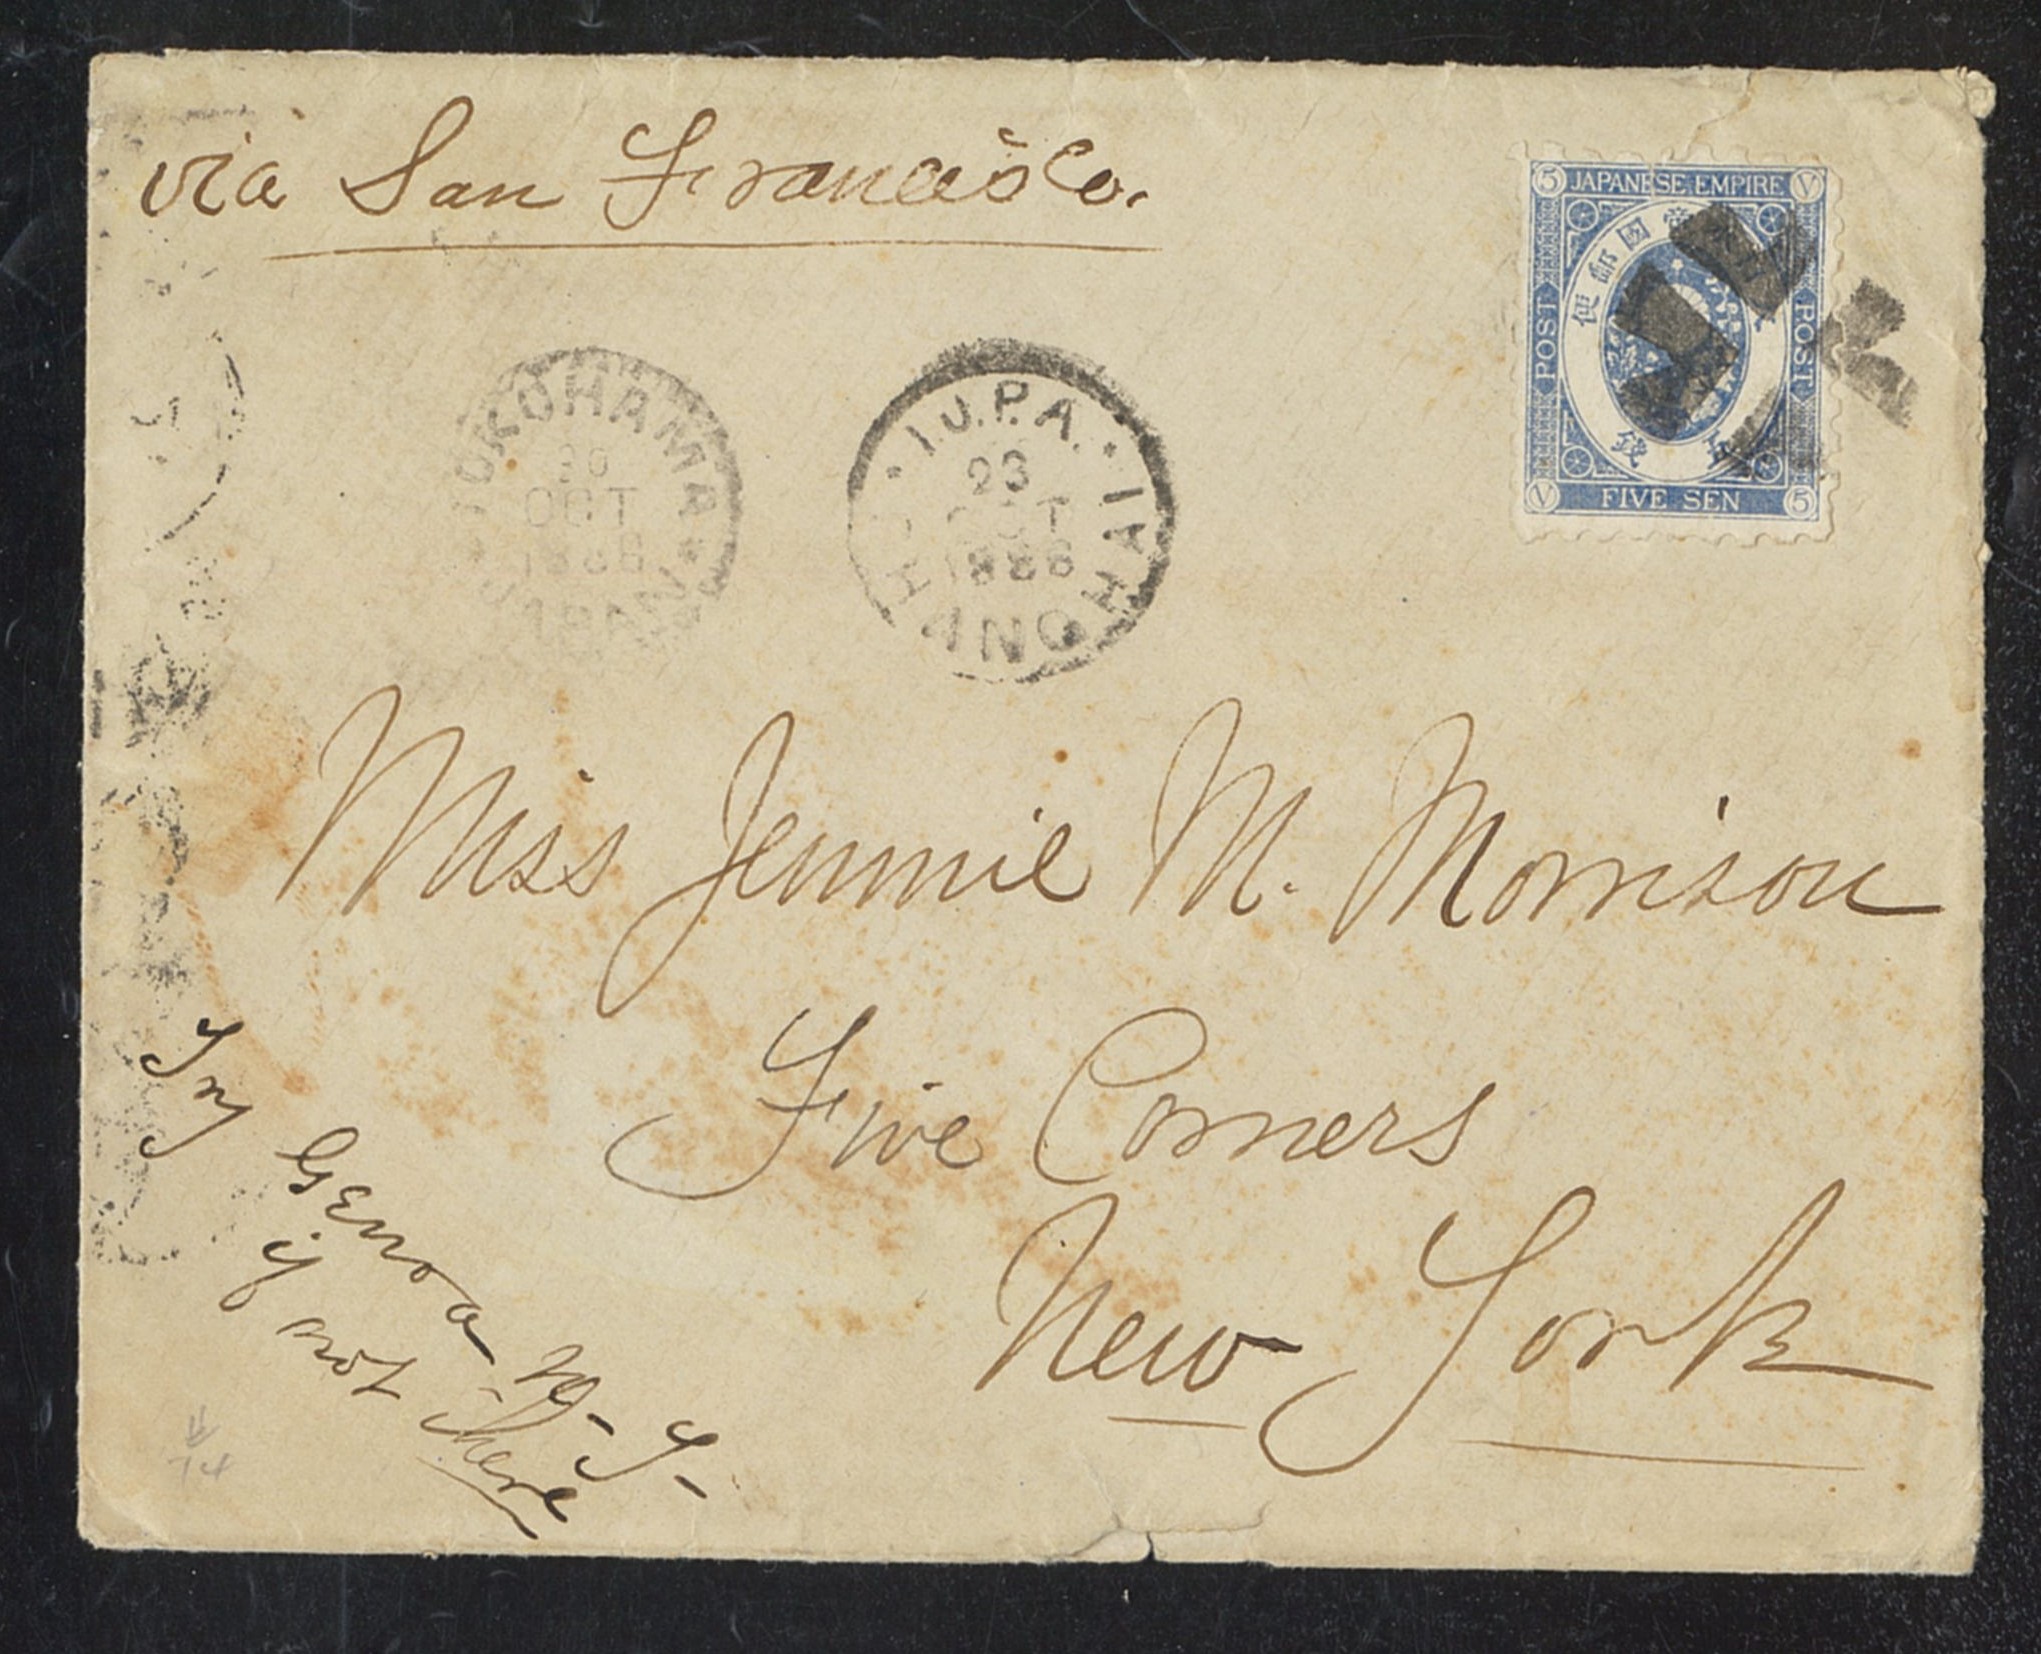 via San Francisco.
5 JAPANESE EMPIRE V
國郵便
POST
POST
錢
V FIVE SEN 5
YOKOHAMA
OCT
1888
JAPAN
I.J.P.A.
23
OCT
1888
SHANGHAI
Miss Jennie M. Morrison
Five Corners
New York
Try
Genoa N-Y-
if not here
14